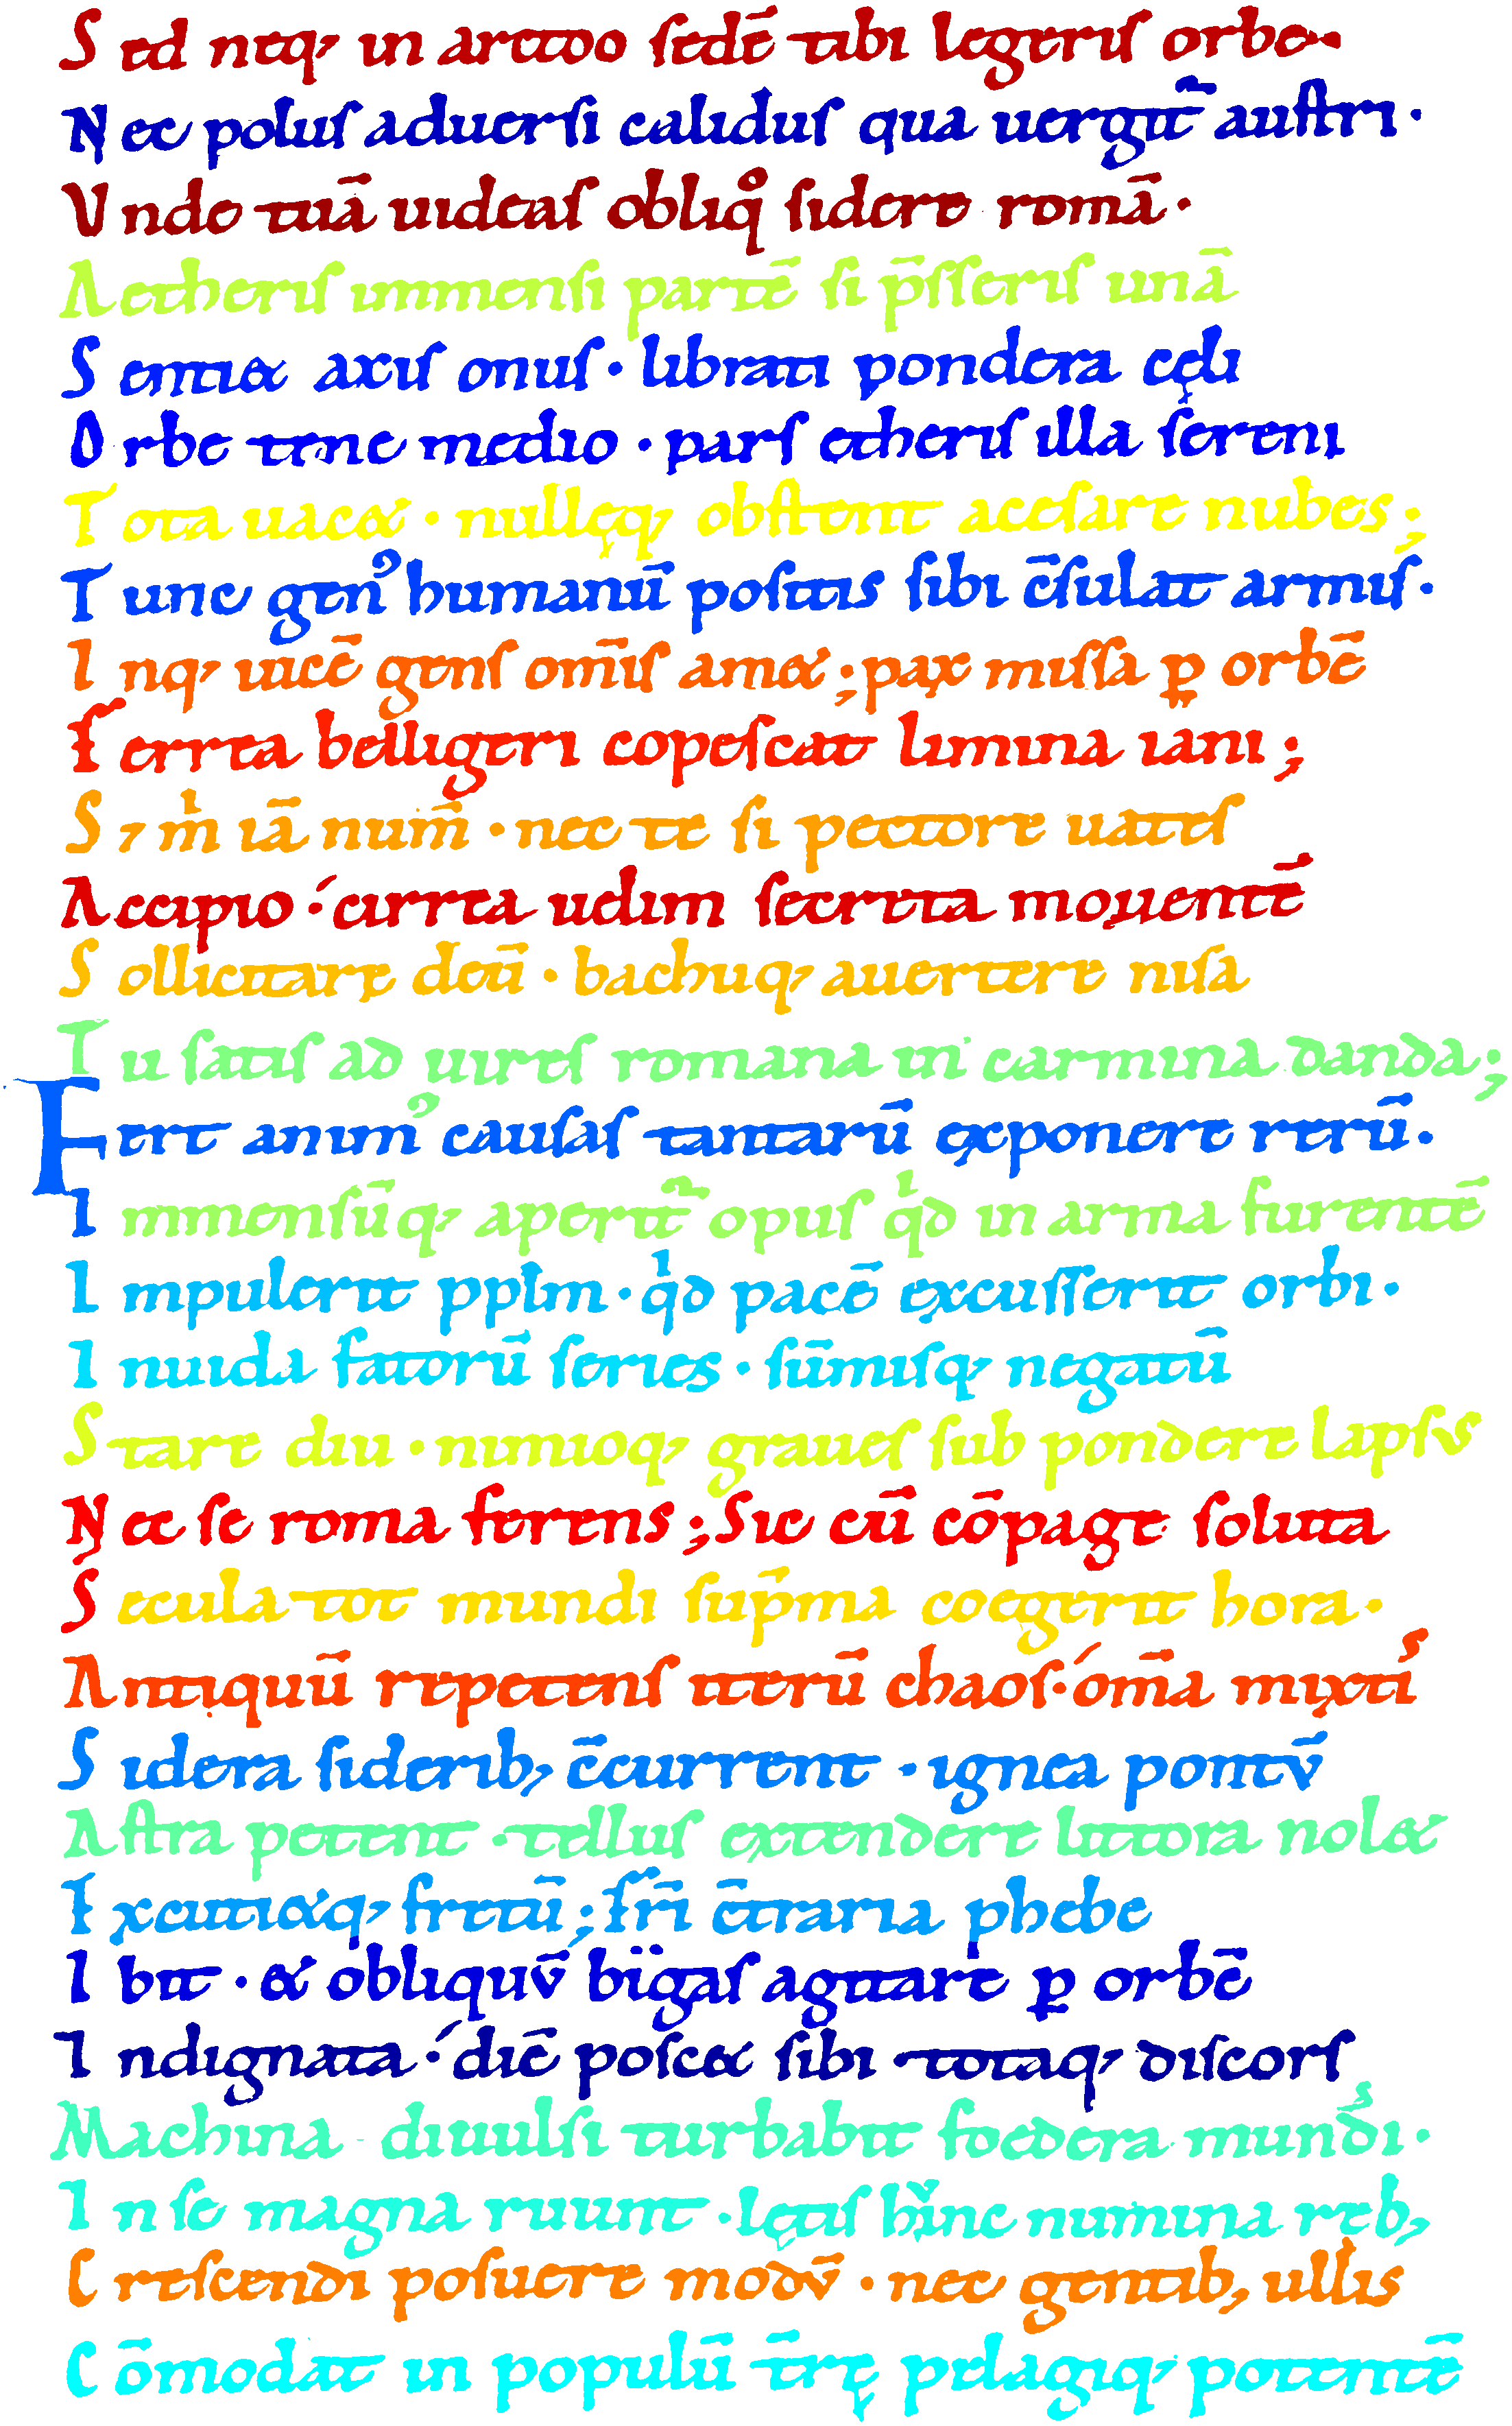 Sed neq; in arctoo sedē tibi legeris orbe.
Nec polus aduersi calidus qua uergit᷑ austri.
Vnde tuā uideas obliqͦ sidere romā.
Aetheris immensi partē si p̄sseris unā
Sentiet axis onus. librati pondera cęli
Orbe tene medio. pars etheris illa sereni
Tota uacet. nullęq; obstent acesare nubes;
Tunc genꝰ humanū positis sibi c̄sulat armis.
Inq; uicē gens om̄is amet; pax missa ꝑ orbē
Ferrea belligeri copescat limina iani;
S; mͥ iā num̄. nec te si pectore uates
Accipio. cirrea uelim secreta mouentē
Sollicitare deū. bachuq; auertere nisa
Tu satis ad uires romana in carmina danda;
Fert animꝰ causas tantarū exponere rerū.
Immensūq; aperit᷑ opus qͥd in arma furentē
Impulerit pplm. qͥd pacē excusserit orbi.
Inuida fatorū series. sūmisq; negatū
Stare diu. nimioq; graues sub pondere lapsus
Nec se roma ferens; Sic cū cōpage soluta
Secula tot mundi sup̄ma coegerit hora.
Antiquū repetens iterū chaos. om̄a mixtis
Sidera siderib; c̄current. ignea pontū
Astra petent. tellus extendere littora nolet
Excutietq; fretū; Fr̄i c̄traria phebe
Ibit. et obliquū bigas agitare ꝑ orbē
Indignata. diē poscet sibi totaq; discors
Machina diuulsi turbabit foedera mundi.
In se magna ruunt. lętis hunc numina reb;
Crescendi posuere modū. nec gentib; ullis
Cōmodat in populū t̄rę pelagiq; potentē